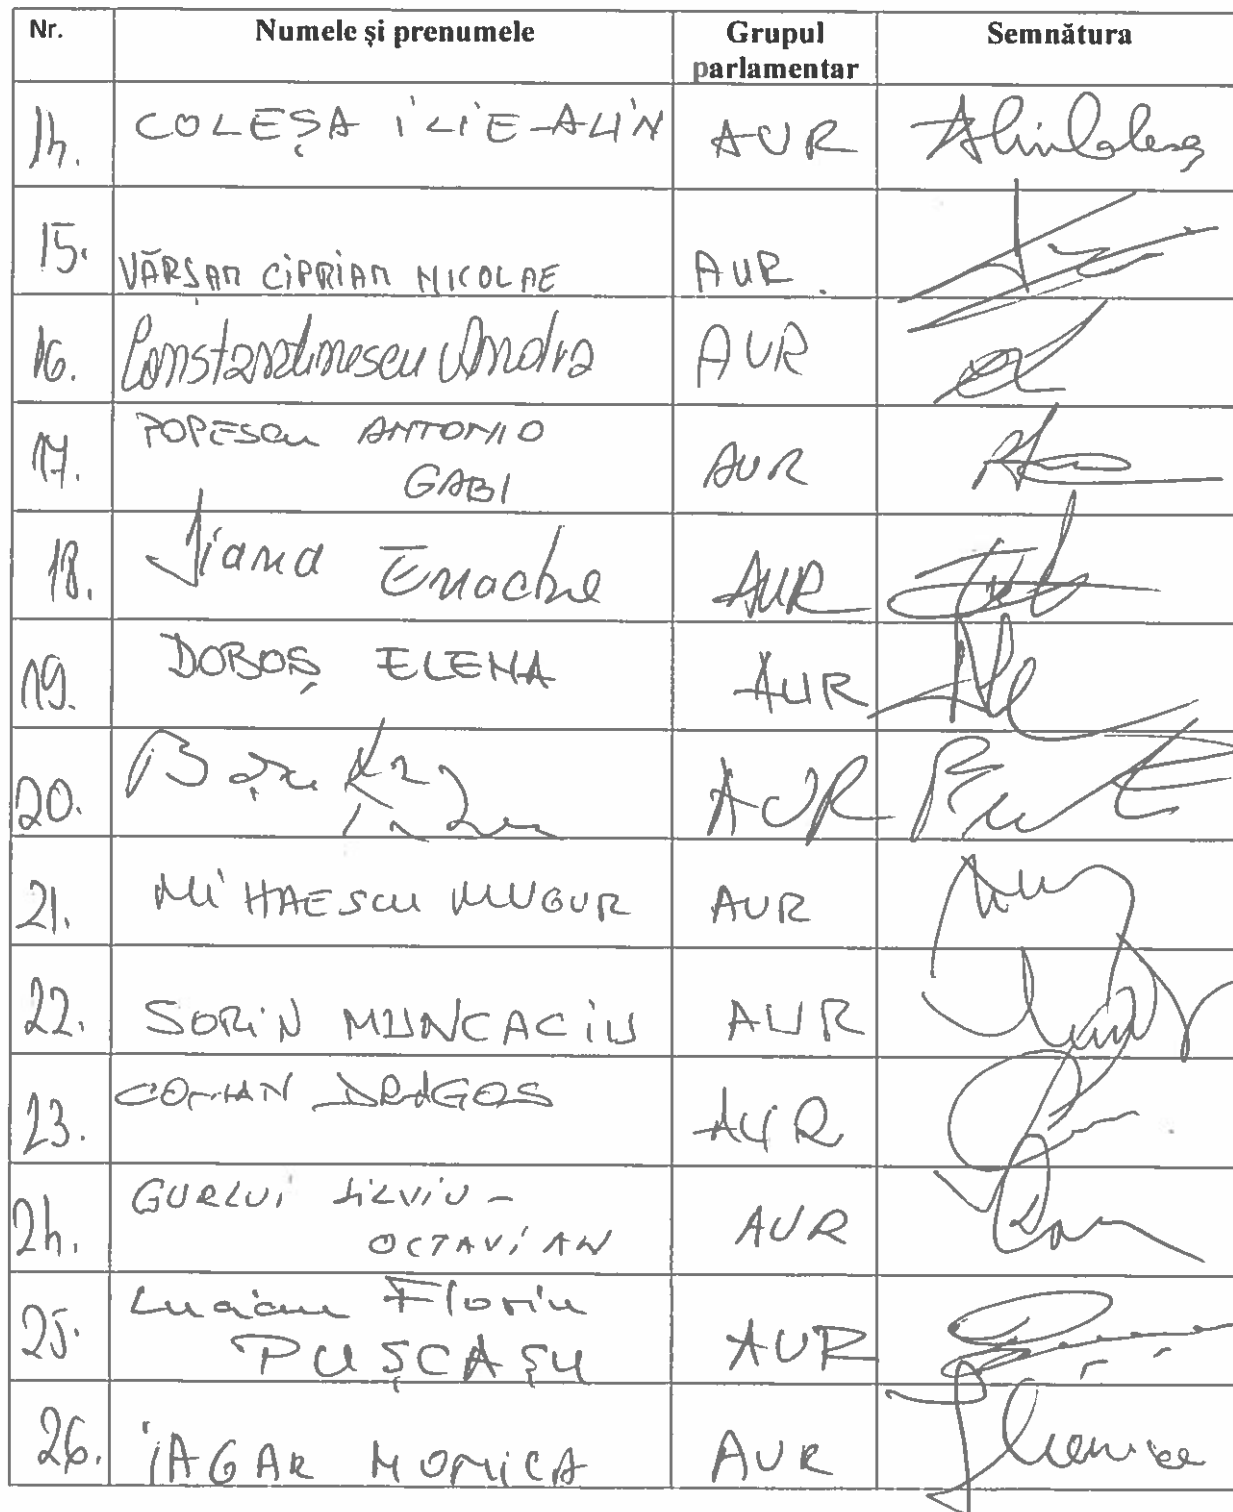 Nr. Numele și prenumele Grupul parlamentar Semnătura
14. COLEȘA ILIE-ALIN AUR
15. VĂRȘAN CIPRIAN NICOLAE AUR.
16. Constantinescu Andra AUR
17. POPESCU ANTONIO
GABI AUR
18. Enache AUR
19. DOBOȘ ELENA AUR
20. AUR
21. MIHAESCU MUGUR AUR
22. SORIN MUNCACIU AUR
23. COMAN DRAGOS AUR
24. GURLUI SILVIU -
OCTAVIAN AUR
25. Lucian Florin
PUȘCAȘU AUR
26. IAGĂR MONICA AUR